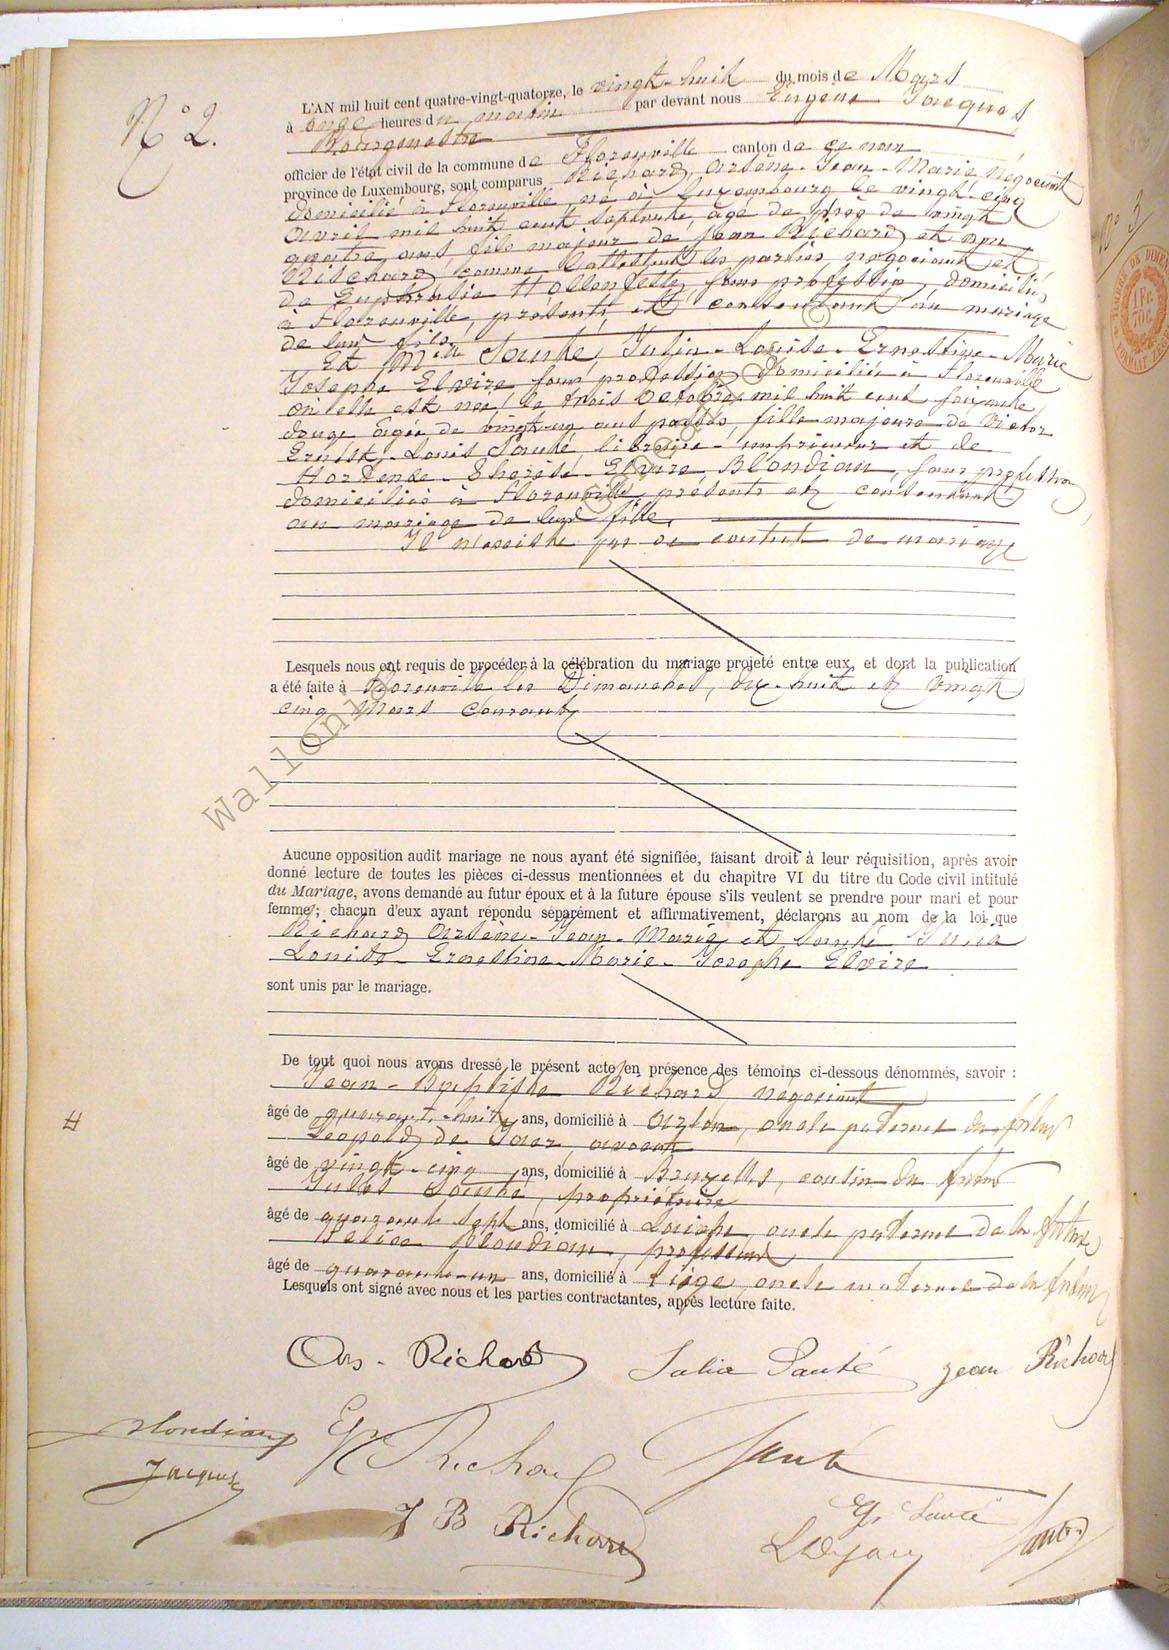 N° 2.
L'AN mil huit cent quatre-vingt-quatorze, le vingt-huit du mois de Mars
à onze heures du matin par devant nous Eugène Jacques,
Bourgmestre
officier de l'état civil de la commune de Florenville canton de ce nom
province de Luxembourg, sont comparus Richard, Arsène-Jean-Marie négociant
domicilié à Florenville, né à Luxembourg le vingt-cinq
avril mil huit cent septante, âgé de près de vingt
quatre ans, fils majeur de Jean Richard et non
Rischard, comme l'attestent les parties, négociant et
de Euphrasie Hollenfeltz, sans profession, domiciliés
à Florenville, présents et consentant au mariage
de leur fils.
Et Mlle Sauté, Julia-Louise-Ernestine-Marie
Josephe Elvire sans profession domiciliée à Florenville
où elle est née le trois octobre mil huit cent soixante
douze âgée de vingt-un ans passés, fille majeure de Victor
Ernest-Louis Sauté, libraire-imprimeur et de
Hortense-Thérèse-Elvire Blondiau, sans profession
domiciliés à Florenville, présents et consentant
au mariage de leur fille.
Il n'existe pas de contrat de mariage
Lesquels nous ont requis de procéder à la célébration du mariage projeté entre eux, et dont la publication
a été faite à Florenville les Dimanches, dix-huit et vingt
cinq Mars courant
Aucune opposition audit mariage ne nous ayant été signifiée, faisant droit à leur réquisition, après avoir
donné lecture de toutes les pièces ci-dessus mentionnées et du chapitre VI du titre du Code civil intitulé
du Mariage, avons demandé au futur époux et à la future épouse s'ils veulent se prendre pour mari et pour
femme ; chacun d'eux ayant répondu séparément et affirmativement, déclarons au nom de la loi que
Richard Arsène-Jean-Marie et Sauté Julia
Louise-Ernestine-Marie-Josephe Elvire
sont unis par le mariage.
De tout quoi nous avons dressé le présent acte en présence des témoins ci-dessous dénommés, savoir :
Jean-Baptiste Richard négociant
âgé de quarante-huit ans, domicilié à Arlon, oncle paternel du futur
Léopold de Jaer, avocat
âgé de vingt-cinq ans, domicilié à Bruxelles, cousin du futur
Jules Sauté, propriétaire
âgé de quarante sept ans, domicilié à oncle paternel de la future
Blondiau, professeur
âgé de quarante-un ans, domicilié à Liège, oncle maternel de la future
Lesquels ont signé avec nous et les parties contractantes, après lecture faite.
Ars. Richard Julia Sauté Jean Richard
Blondiau Richard Sauté
Jacques
J B Richard Sauté
N° 3
Wallonie